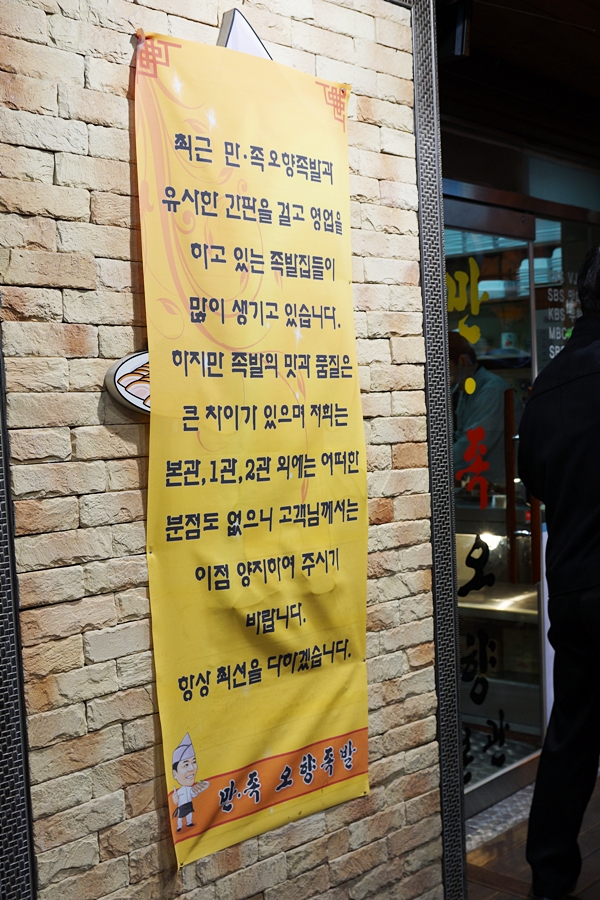 최근 만·족오향족발과
유사한 간판을 걸고 영업을
하고 있는 족발집들이
많이 생기고 있습니다.
하지만 족발의 맛과 품질은
큰 차이가 있으며 저희는
본관,1관,2관 외에는 어떠한
분점도 없으니 고객님께서는
이점 양지하여 주시기
바랍니다.
항상 최선을 다하겠습니다.
만·족 오향족발
만
족
오
향
SBS
KBS
MBC